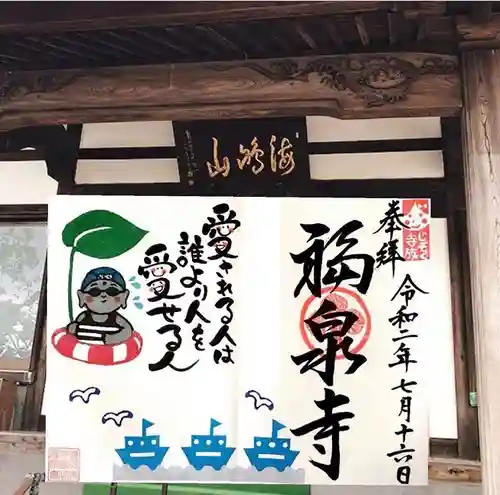 海鳴山
奉拝
じぞう
寺族
令和二年七月十六日
福泉寺
愛される人は
誰より人を
愛せる人